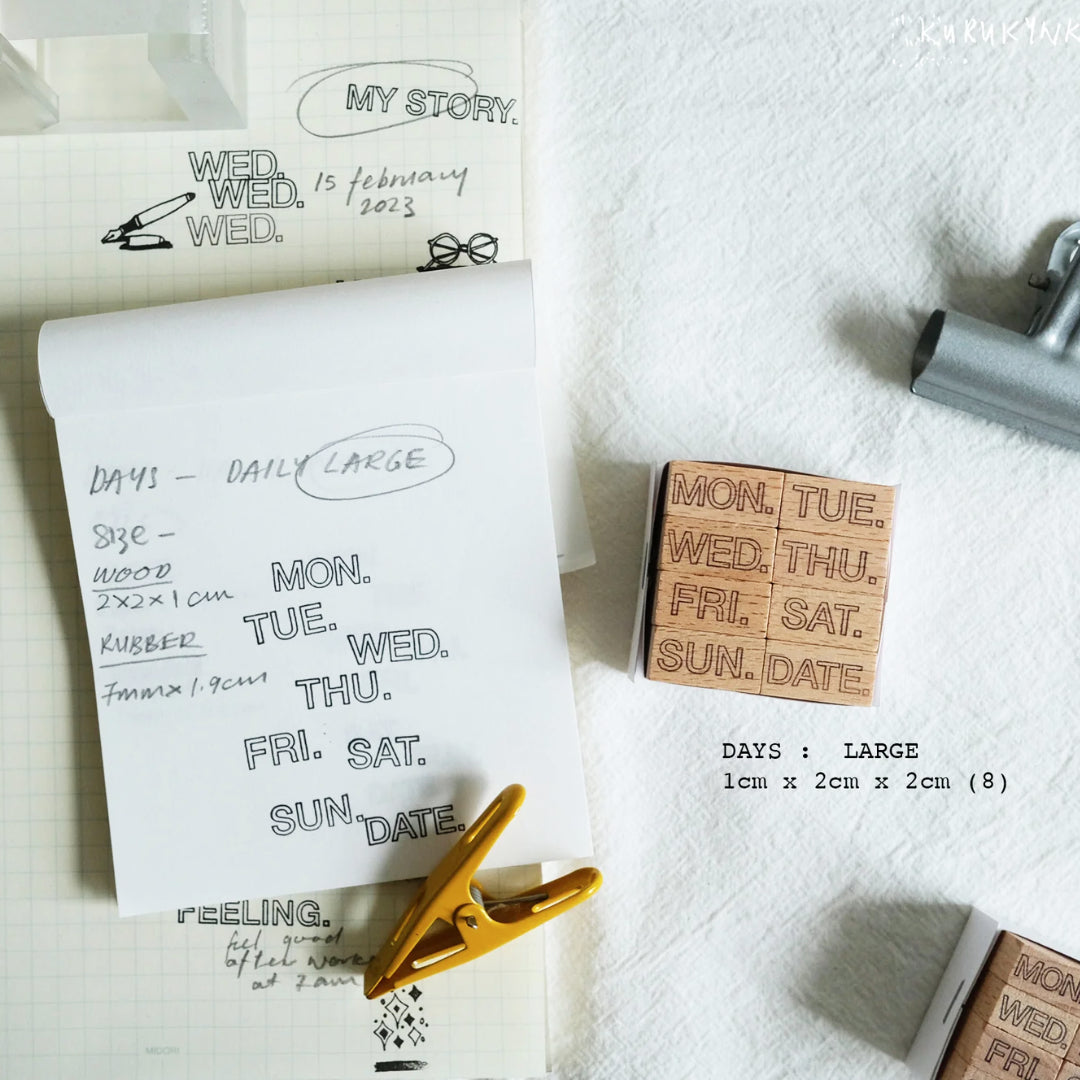 KURUKYNK
MY STORY.
WED.
WED.
WED.
15 february
2023
DAYS - DAILY LARGE
SIZE -
WOOD
2x2x1 cm
RUBBER
7mm x 1.9cm
MON.
TUE.
WED.
THU.
FRI. SAT.
SUN. DATE.
FEELING.
feel good
after work
at 7am
MIDORI
MON. TUE.
WED. THU.
FRI. SAT.
SUN. DATE.
DAYS : LARGE
1cm x 2cm x 2cm (8)
MON
WED.
FRI